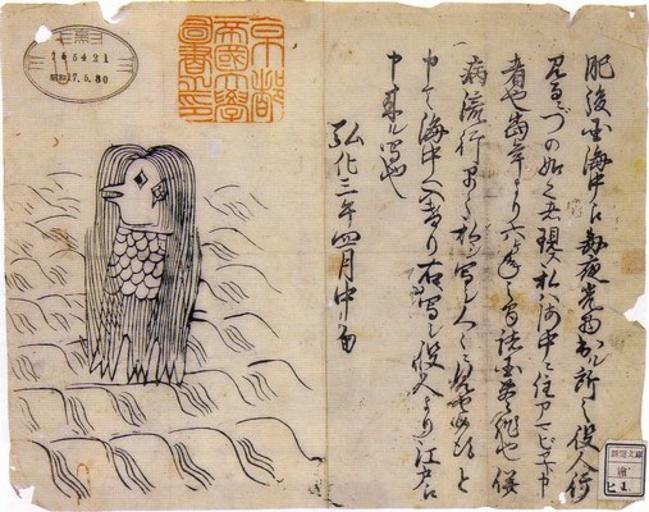 肥後国海中え毎夜光物出ル所之役人行
見るニづの如く者現ス私ハ海中ニ住アマビヱト申
者也当年より六ケ年之間諸国豊作也併
病流行早々私ヲ写シ人々ニ見セ候得と
申て海中へ入けり右写シ役人より江戸え
申来ル写也
弘化三年四月中旬
京都
帝國大學
圖書之印
昭和17.5.30
新聞文庫